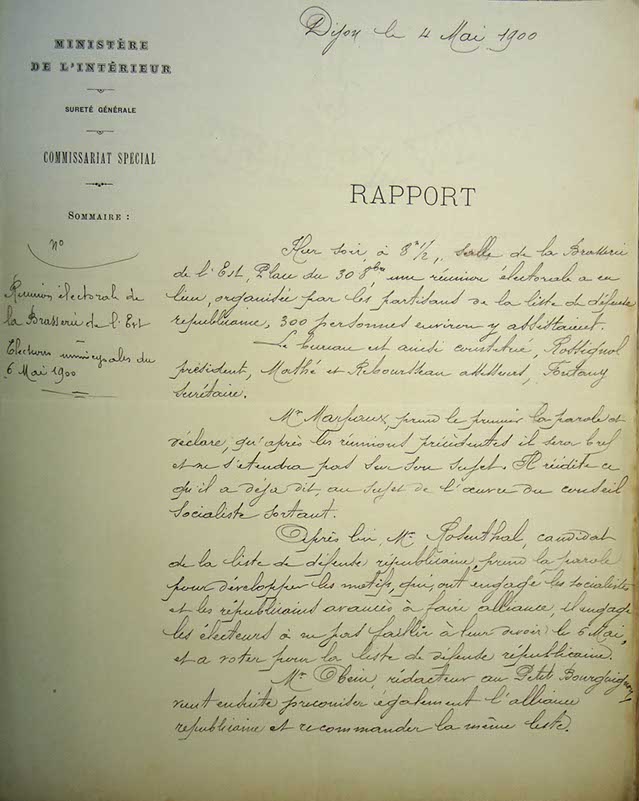 Dijon le 4 Mai 1900
MINISTÈRE
DE L'INTÉRIEUR
SURETÉ GÉNÉRALE
COMMISSARIAT SPÉCIAL
RAPPORT
SOMMAIRE :
N°
Réunion électorale de
la Brasserie de l'Est
Elections municipales du
6 Mai 1900
Hier soir, à 8h 1/2, salle de la Brasserie
de l'Est, Place du 30 8bre une réunion électorale a eu
lieu, organisée par les partisans de la liste de défense
républicaine, 300 personnes environ y assistaient.
Le bureau est ainsi constitué, Rossignol
président, Mathé et Rebourseau assesseurs,
secrétaire.
Mr Marpaux, prend le premier la parole et
déclare, qu'après les réunions précédentes il sera bref
et ne s'étendra pas sur son sujet. Il réédite ce
qu'il a déja dit, au sujet de l'œuvre du conseil
socialiste sortant.
Après lui, Mr Rosenthal, candidat
de la liste de défense républicaine, prend la parole
pour développer les motifs, qui, ont engagé les socialistes
et les républicains avancés à faire alliance, il engage
les électeurs à ne pas faillir à leur devoir le 6 Mai,
et a voter pour la liste de défense républicaine.
Mr Obein, rédacteur au Petit Bourguignon,
vient ensuite préconiser également l'alliance
républicaine et recommander la même liste.